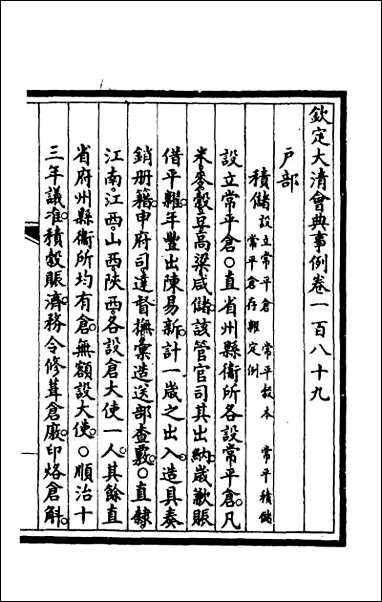 欽定大清會典事例卷一百八十九
戶部
積儲 設立常平倉 常平穀本 常平積儲
常平倉存糶定例
設立常平倉○直省州縣衞所各設常平倉凡
米麥穀豆高粱咸儲該管官司其出納歲歉賬
借平糶年豐出陳易新計一歲之出入造具奏
銷册籍申府司達督撫彙造送部查覈○直隸
江南江西山西陝西各設倉大使一人其餘直
省府州縣衞所均有倉無額設大使○順治十
三年議准積穀賬濟務令修葺倉廒印烙倉斛